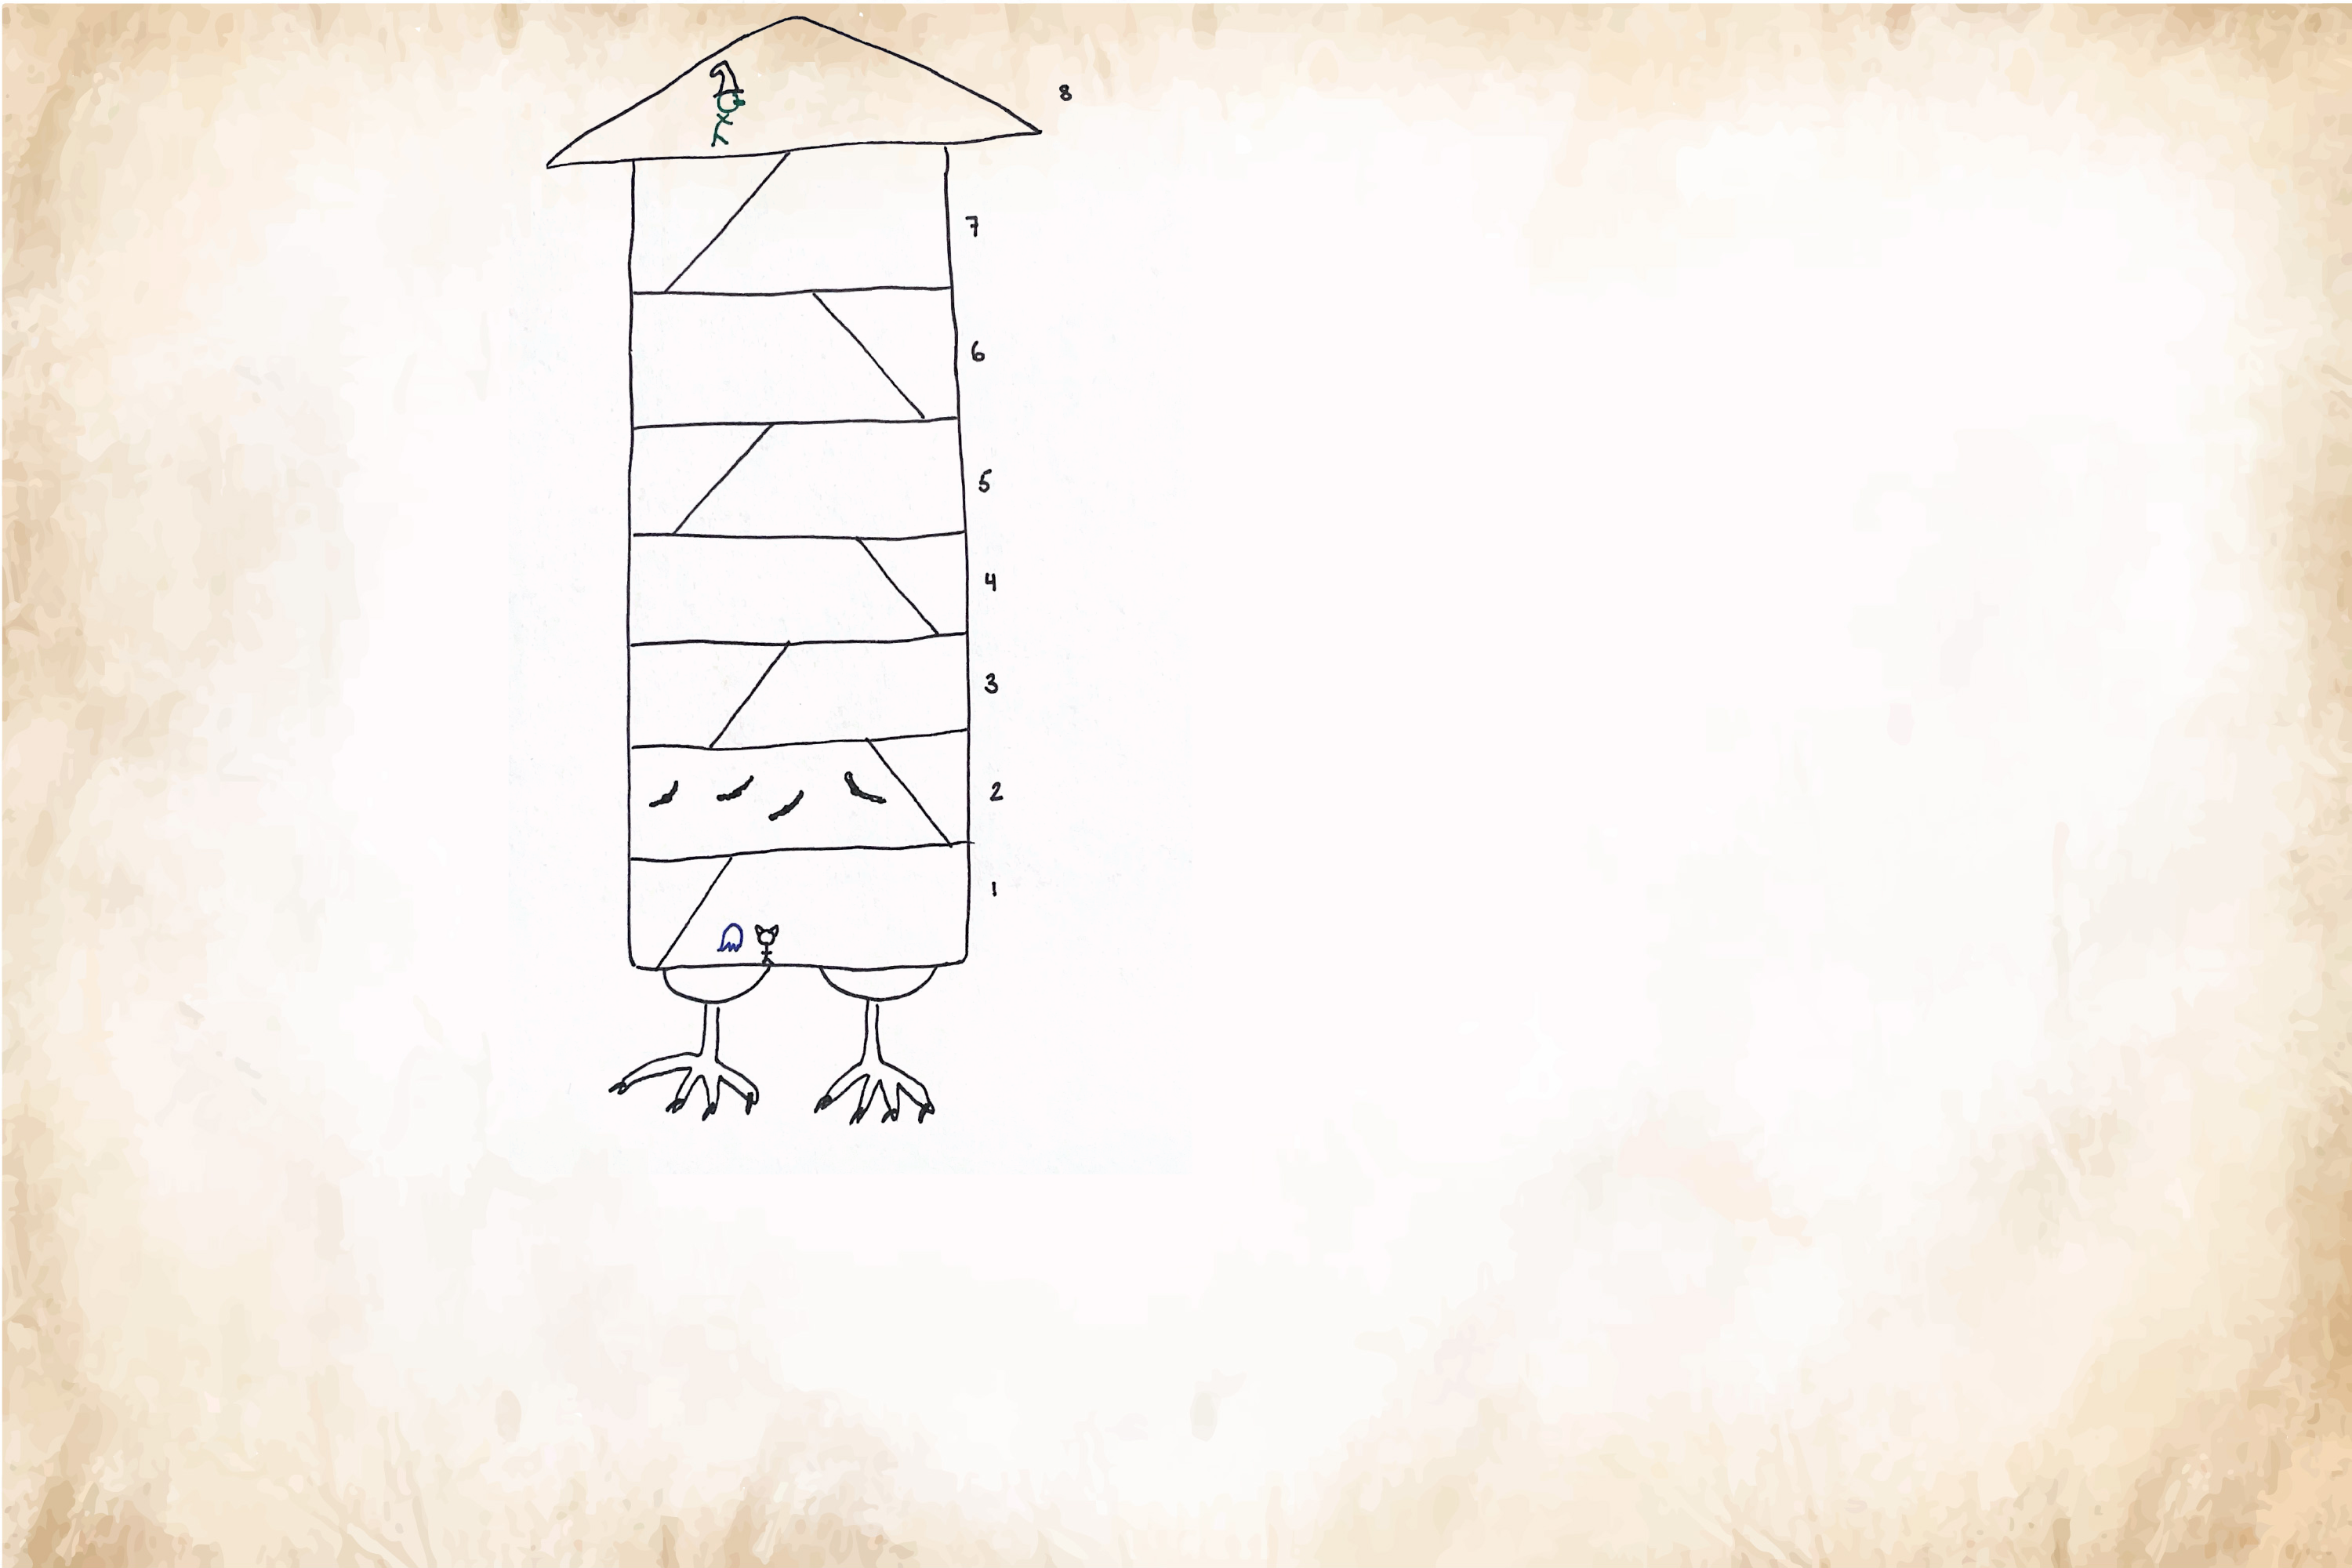 8
7
6
5
4
3
2
1